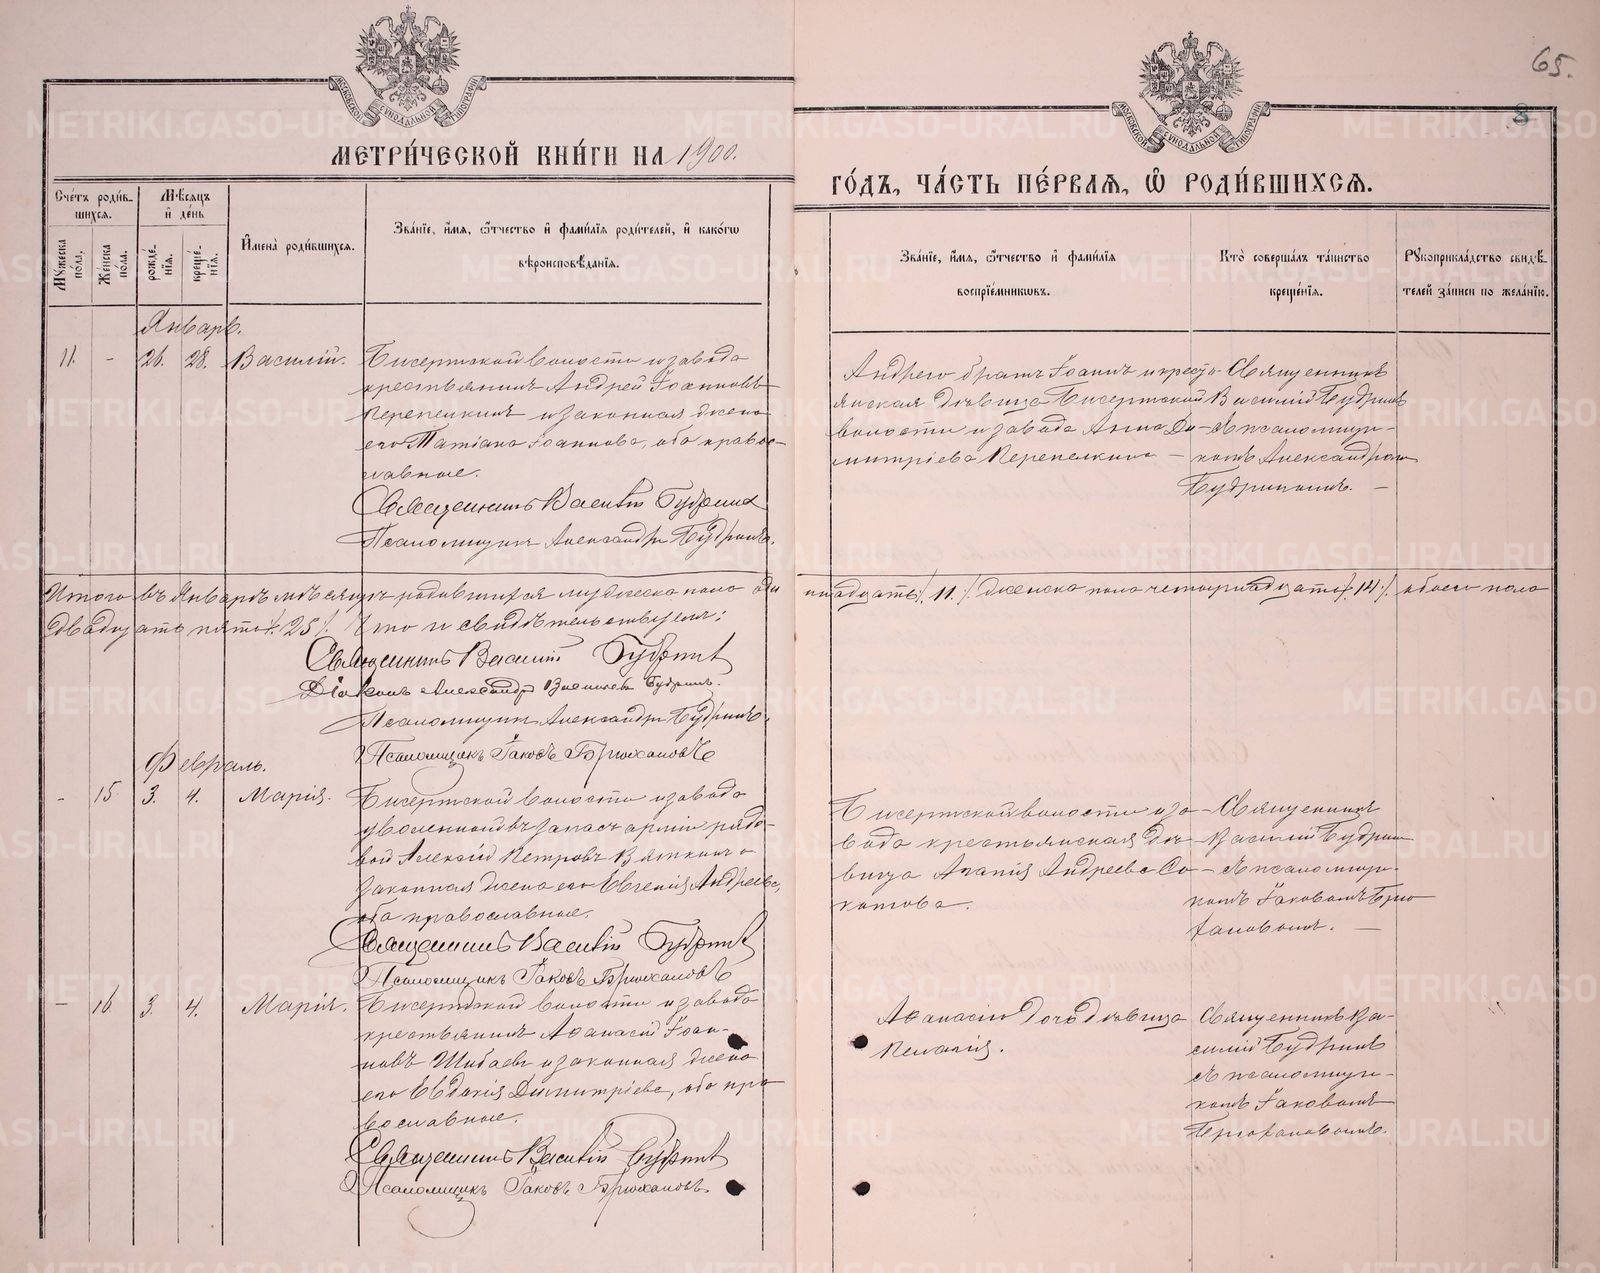 65.
8
МОСКОВСКОЙ СѴНОДАЛЬНОЙ ТИПОГРАФІИ
МОСКОВСКОЙ СѴНОДАЛЬНОЙ ТИПОГРАФІИ
МЕТРИ́ЧЕСКОЙ КНИ́ГИ НА 1900.
ГО́ДЪ, ЧА́СТЬ ПЕ́РВАЯ, Ѽ РОДИ́ВШИХСЯ.
Сче́тъ роди́в-
шихся.
Мꙋ́жеска по́ла.
Же́нска по́ла.
Мѣ́сяцъ
и҆ де́нь
рожде́-
нїя.
креще́-
нїя.
И҆мена̀ роди́вшихся.
Зва́нїе, и҆́мя, ѻ҆́тчество и҆ фами́лїя роди́телей, и҆ како́гѡ
вѣроисповѣ́данїя.
Зва́нїе, и҆́мя, ѻ҆́тчество и҆ фами́лїя
воспрїе́мникѡвъ.
Кто̀ соверша́лъ та́инство
креще́нїя.
Рꙋкоприкла́дство свидѣ́-
телей за́писи по жела́нїю.
Январь.
11.
-
26.
28.
Василій.
Бисертской волости и завода
крестьянинъ Андрей Іоанновъ
Перепелкинъ и законная жена
его Татіана Іоаннова, оба правос-
лавные.
Священникъ Василій Будринъ
Псаломщикъ Александръ Будринъ.
Андрея братъ Іоаннъ и кресть-
янская дѣвица Бисертской
волости и завода Анна Ди-
митріева Перепелкина
Священникъ
Василій Будринъ
съ псаломщи-
комъ Александромъ
Будринымъ. —
Итого въ Январѣ мѣсяцѣ родившихся мужеска пола оди
ннадцать /. 11 /. женска пола четырнадцать /. 14 /. обоего пола
двадцать пять /. 25 /. Что и свидѣтельствуемъ:
Священникъ Василій Будринъ
Діаконъ Александръ Васильевъ Будринъ.
Псаломщикъ Александръ Будринъ.
Псаломщикъ Іаковъ Брюхановъ
Февраль.
-
15
3.
4.
Марія.
Бисертской волости и завода
уволенный въ запасъ арміи рядо-
вой Алексій Петровъ Вяткинъ и
законная жена его Евгенія Андреева,
оба православные.
Священникъ Василій Будринъ
Псаломщикъ Іаковъ Брюхановъ
Бисертской волости и за-
вода крестьянская дѣ-
вица Агапія Андреева Со-
котова.
Священникъ
Василій Будринъ
съ псаломщи-
комъ Іаковомъ Брю
хановымъ. —
-
16.
3.
4.
Марія.
Бисертской волости и завода
крестьянинъ Аѳанасій Іоан-
новъ Шибаевъ и законная жена
его Евдокія Димитріева, оба пра
вославные.
Священникъ Василій Будринъ
Псаломщикъ Іаковъ Брюхановъ.
Аѳанасія дочь дѣвица
Пелагія.
Священникъ Ва-
силій Будринъ
съ псаломщи-
комъ Іаковомъ
Брюхановымъ.
METRIKI.GASO-URAL.RU